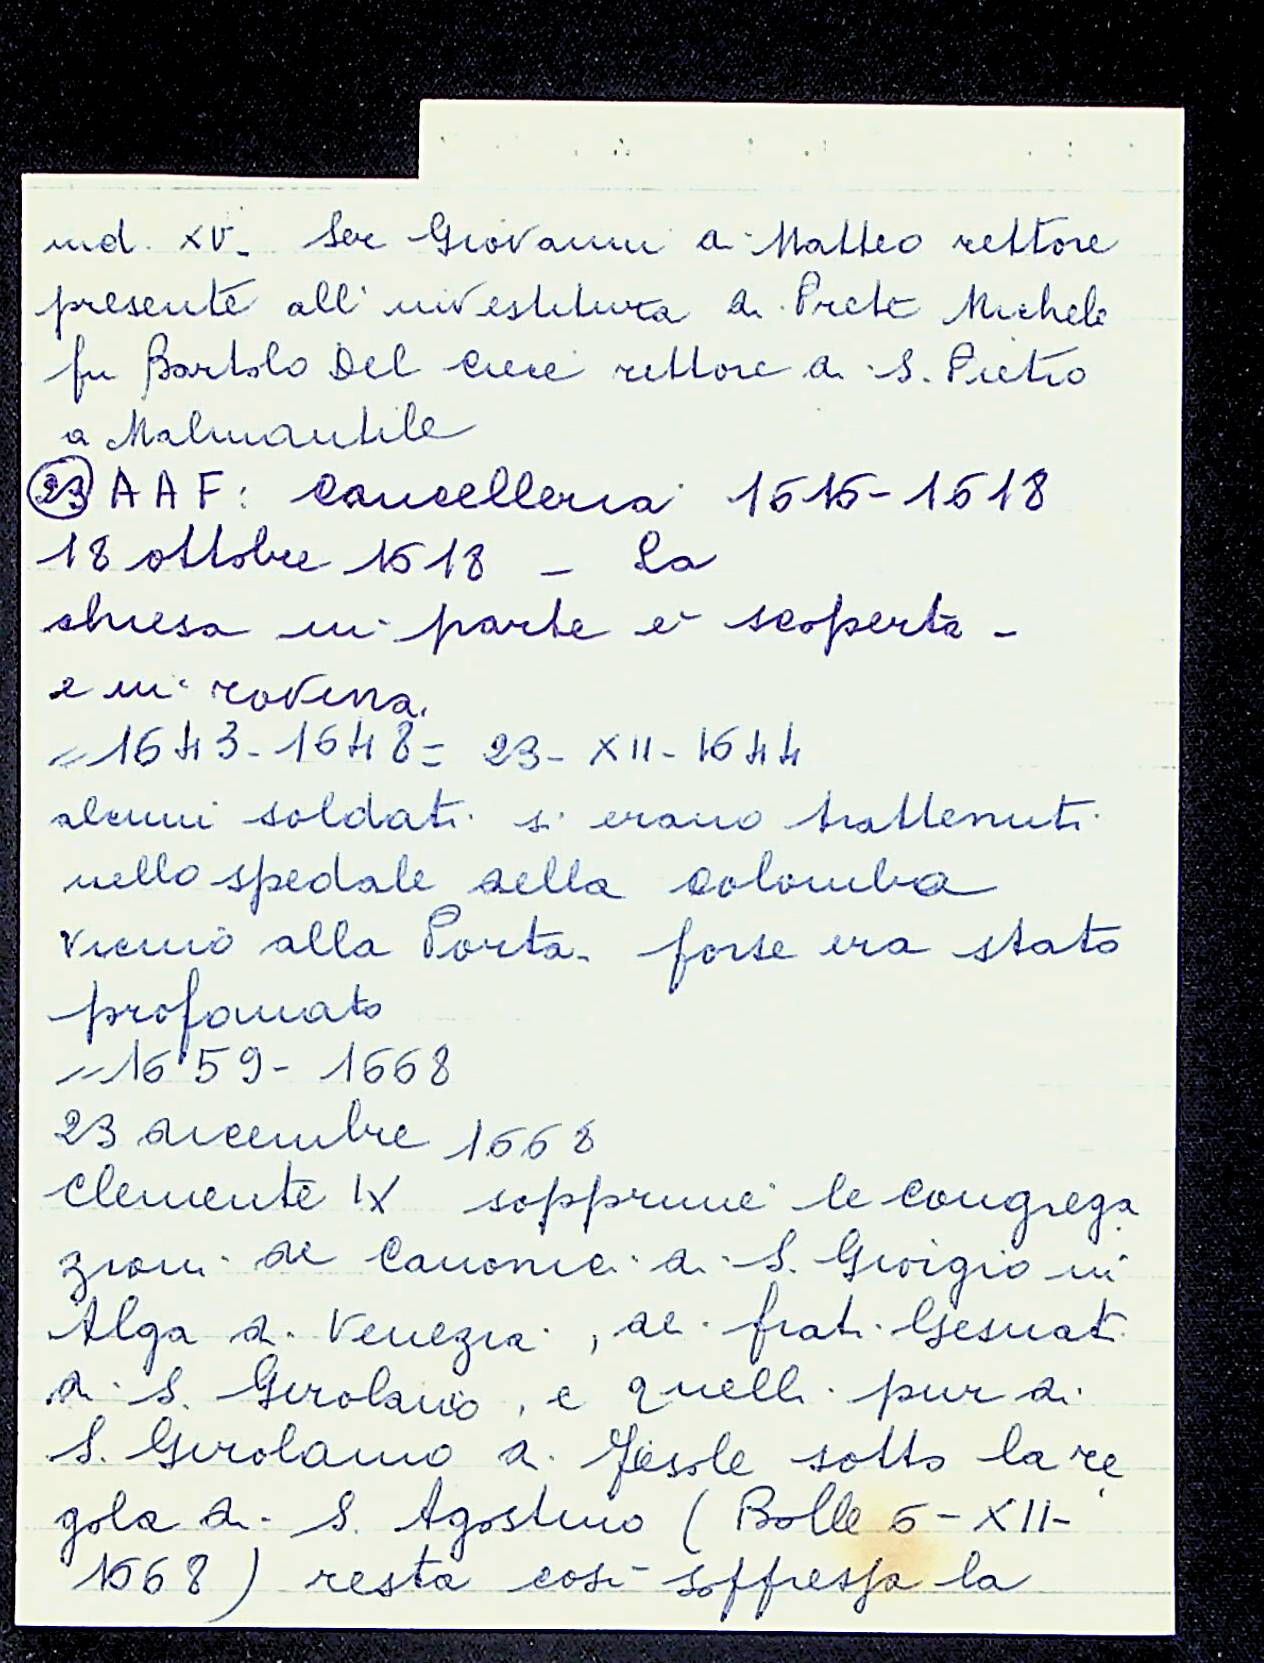 ind. XV. Ser Giovanni di Matteo rettore
presente all'investitura di Prete Michele
fu Bartolo Del rettore di S. Pietro
a Malmantile
(23) AAF: Cancelleria 1616-1618
18 ottobre 1618 - La
chiesa in parte è scoperta -
e in rovina.
〃 1643-1648 = 23-XII-1644
alcuni soldati si erano trattenuti
nello spedale della Colomba
vicino alla Porta. forse era stato
profanato
〃 1659-1668
23 dicembre 1668
Clemente IX sopprime le congrega
zioni dei Canonici di S. Giorgio in
Alga di Venezia, dei frati Gesuati
di S. Girolamo, e quelli pur di
S. Girolamo di Fiesole sotto la re
gola di S. Agostino (Bolle 6-XII-
1668) resta così soffressa la